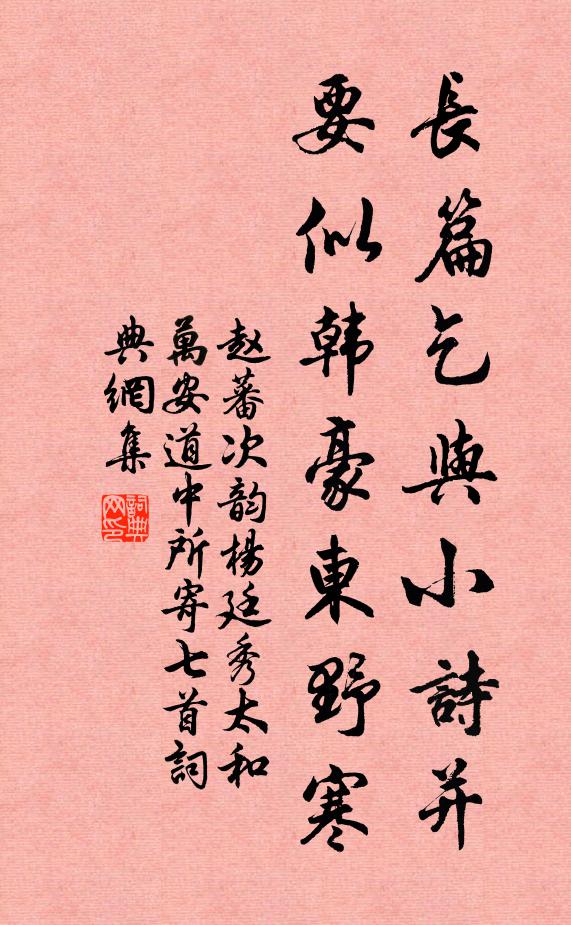 長篇乞與小詩并
要似韩豪東野寒
赵蕃次韵楊廷秀太和
萬安道中所寄七首詞
典網集
詞典网印